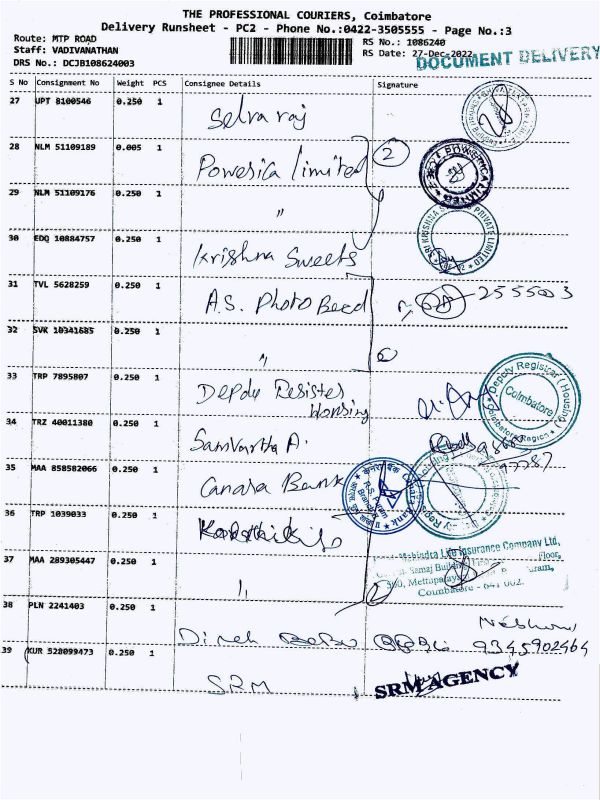 THE PROFESSIONAL COURIERS, Coimbatore
Delivery Runsheet - PC2 - Phone No.:0422-3505555 - Page No.:3
Route: MTP ROAD
Staff: VADIVANATHAN
DRS No.: DCJB108624003
RS No.: 1086240
RS Date: 27-Dec-2022
DOCUMENT DELIVERY
S No Consignment No Weight PCS Consignee Details Signature
27 UPT 8100546 0.250 1 Selvaraj
28 NLM 51109189 0.005 1 Powerica limited 2
POWERICA LIMITED
29 NLM 51109176 0.250 1 "
SRI KRISHNA SWEETS PRIVATE LIMITED
30 EDQ 10884757 0.250 1 Krishna Sweets
31 TVL 5628259 0.250 1 A.S. Photo 2555003
32 SVK 10341685 0.250 1 "
33 TRP 7895807 0.250 1 Housing
Deputy Registrar (Housing)
Coimbatore
Coimbatore Region
34 TRZ 40011380 0.250 1 Samvartha A.
35 MAA 858582066 0.250 1 Canara Bank
Canara Bank
36 TRP 1039033 0.250 1
Mahindra Life Insurance Company Ltd,
Floor,
Samaj Building
Mettupalayam
Coimbatore - 641 002.
37 MAA 289305447 0.250 1 "
38 PLN 2241403 0.250 1 Dinesh Babu 9345902464
39 KUR 528099473 0.250 1 SRM
SRM AGENCY